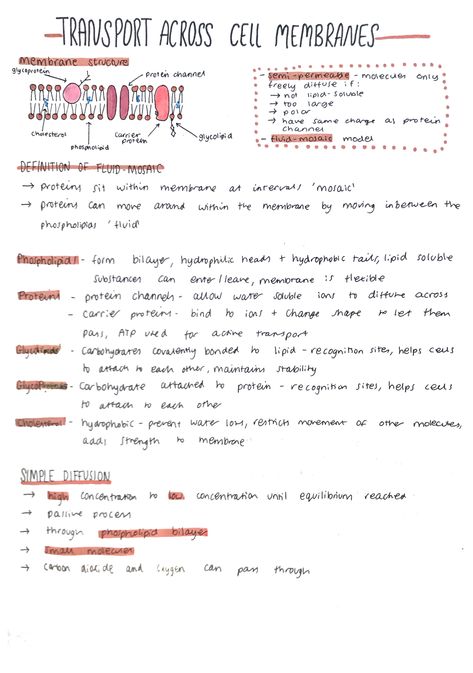 TRANSPORT ACROSS CELL MEMBRANES
membrane structure
glycoprotein
protein channel
cholesterol
phospholipid
carrier protein
glycolipid
- semi-permeable - molecules only
freely diffuse if:
→ not lipid-soluble
→ too large
→ polar
→ have same charge as protein
channel
fluid-mosaic model
DEFINITION OF FLUID-MOSAIC
→ proteins sit within membrane at intervals 'mosaic'
→ proteins can move around within the membrane by moving inbetween the
phospholipids 'fluid'
Phospholipids - form bilayer, hydrophilic heads + hydrophobic tails, lipid soluble
substances can enter/leave, membrane is flexible
Proteins - protein channels - allow water soluble ions to diffuse across
- carrier proteins - bind to ions + change shape to let them
pass, ATP used for active transport
Glycolipids - Carbohydrates covalently bonded to lipid - recognition sites, helps cells
to attach to each other, maintains stability
Glycoproteins - Carbohydrate attached to protein - recognition sites, helps cells
to attach to each other
Cholesterol - hydrophobic - prevent water loss, restrict movement of other molecules,
adds strength to membrane
SIMPLE DIFFUSION
→ high concentration to low concentration until equilibrium reached
→ passive process
→ through phospholipid bilayer
→ small molecules
→ carbon dioxide and oxygen can pass through